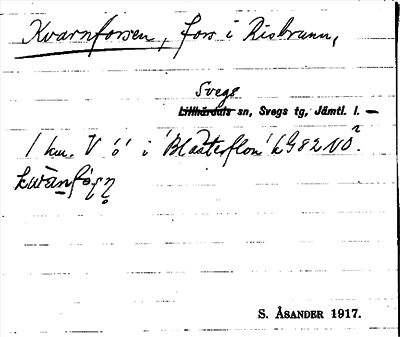 Kvarnforsen, fors i Risbrunn,
Svegs
Lillhärdals sn, Svegs tg, Jämtl. l. —
1 km. V 'ö' i 'Blästerflon' LG82 NO.
S. ÅSANDER 1917.